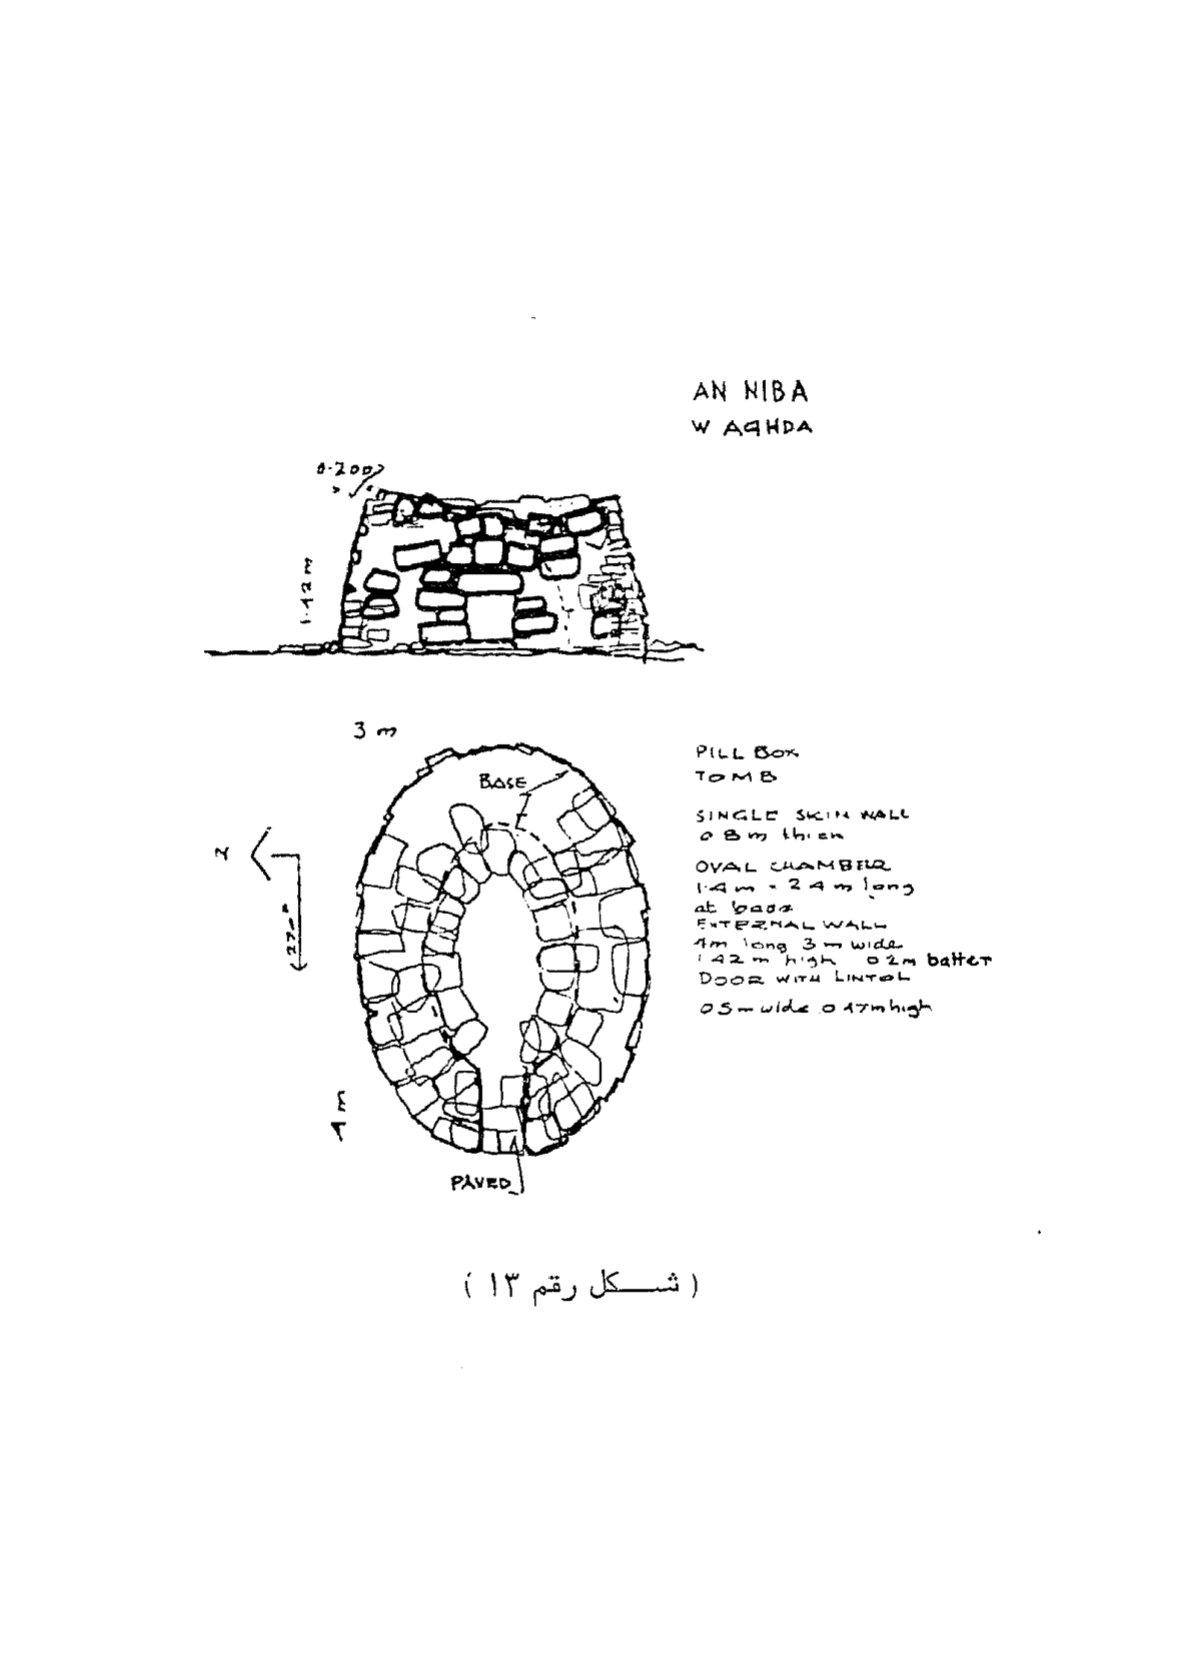 AN NIBA
W AQHDA
0.200
1.42 m
3 m
BASE
PILL BOX
TOMB
SINGLE SKIN WALL
0 8 m thick
OVAL CHAMBER
1.4 m × 2 4 m long
at base
EXTERNAL WALL
4m long 3 m wide
1 42 m high 0 2m batter
DOOR WITH LINTOL
0 5 m wide 0 47m high
4 m
PAVED
( شكل رقم ١٣ )